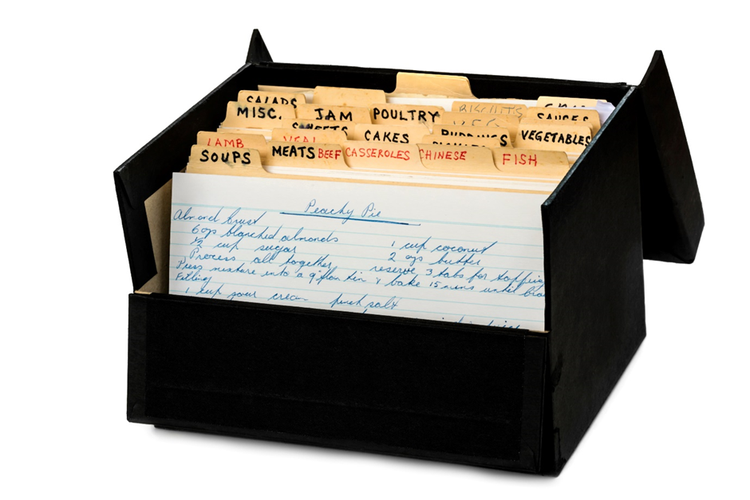 SALADS
MISC. JAM POULTRY SAUCES
SWEETS CAKES PUDDINGS VEGETABLES
LAMB VEAL
SOUPS MEATS BEEF CASSEROLES CHINESE FISH
Peachy Pie
Almond Crust
6 ozs blanched almonds 1 cup coconut
cup sugar 2 ozs butter
Process all together reserve 3 tabs for topping
Press mixture into a 9" flan tin & bake 15 mins until
Filling
1 cup sour cream pinch salt